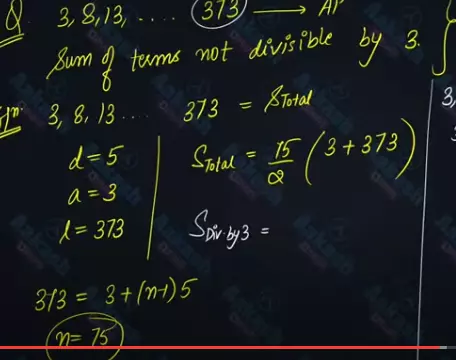 Q. 3, 8, 13, .... 373 → AP
Sum of terms not divisible by 3.
Solⁿ: 3, 8, 13 .... 373 = S_Total
d = 5
a = 3
l = 373
S_Total = 75/2 (3 + 373)
S_Div. by 3 =
373 = 3 + (n-1) 5
n = 75
3,